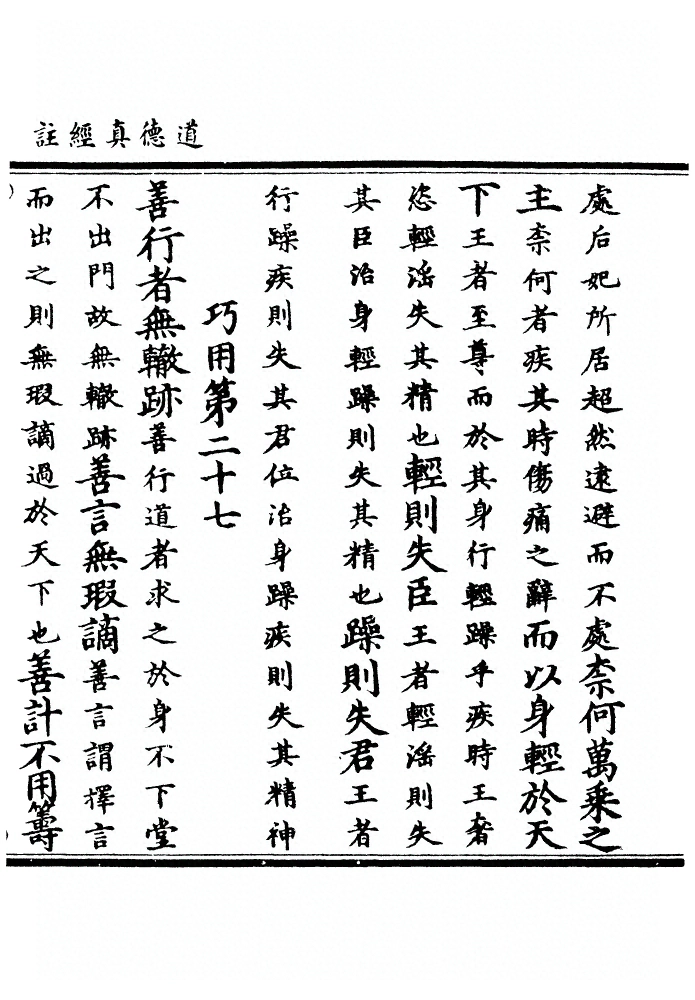 道德真經註
處后妃所居超然逺避而不處柰何萬乗之
主柰何者疾其時傷痛之辭而以身輕於天
下王者至尊而於其身行輕躁乎疾時王奢
恣輕淫失其精也輕則失臣王者輕淫則失
其臣治身輕躁則失其精也躁則失君王者
行躁疾則失其君位治身躁疾則失其精神
巧用第二十七
善行者無轍跡善行道者求之於身不下堂
不出門故無轍跡善言無瑕謫善言謂擇言
而出之則無瑕謫過於天下也善計不用籌